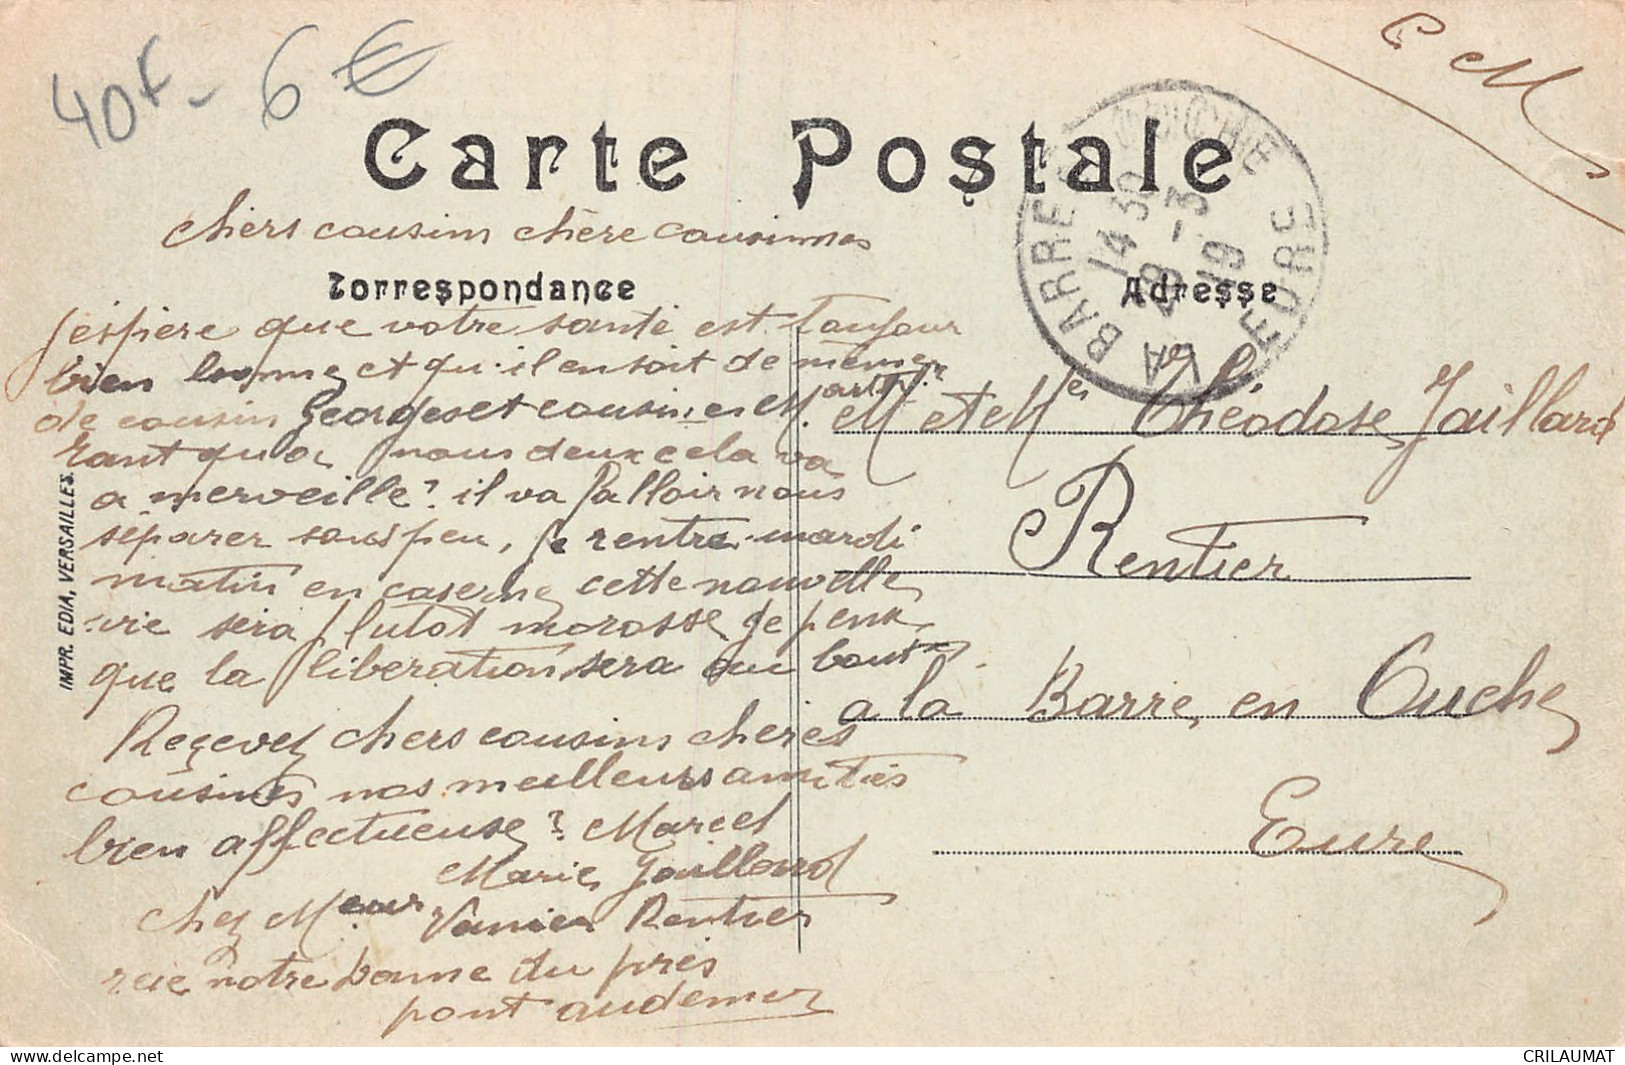 40f - 6€
F. M
Carte Postale
LA BARRE-EN-OUCHE EURE
14 30
29 - 3
19
chers cousins chère cousinnes
Correspondance
Adresse
j'espère que votre santé est toujour
bien bonne, et qu'il en soit de même
de cousin Georges et cousine et Mart
rant qua nous deux cela va
a merveille? il va falloir nous
séparer sous peu, je rentre mardi
matin en caserne, cette nouvelle
vie sera plutot morosse, je pense
que la libération sera au bout.
Recevez chers cousins chères
cousines nos meilleurs amitiés
bien affectueuse? Marcel
Marie, Jaillard
chez Meur Vanier Rentier
rue notre Danne du prés
pont audemer
M et Me Théodose Jaillard
Rentier
a la Barre, en Ouche
Eure
IMPR. EDIA, VERSAILLES.
CRILAUMAT
https://www.delcampe.net